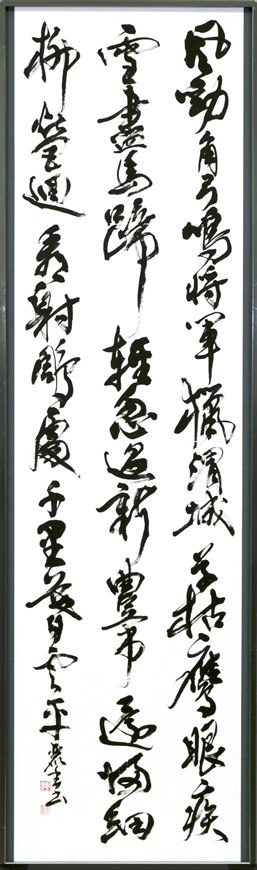 風勁角弓鳴将軍獵渭城草枯鷹眼疾
雪盡馬蹄輕忽過新豊市還歸細
柳營迴看射鵰處千里暮云平